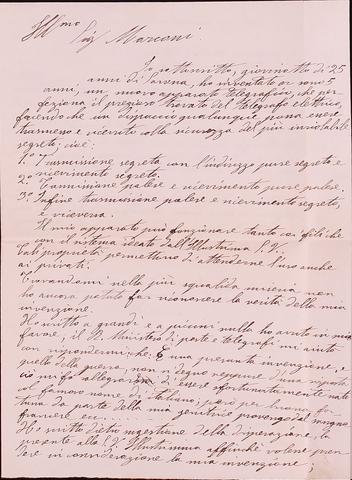 Ill.mo
Sig. Marconi.
Io sottoscritto, giovinetto di 25
anni di Sovena, ho inventato or sono 5
anni, un nuovo apparato telegrafico, che per-
feziona il prezioso trovato del telegrafo elettrico,
facendo che un dispaccio qualunque possa essere
trasmesso e ricevuto colla sicurezza del più inviolabile
segreto; cioè:
1.° Trasmissione segreta con l'indirizzo pure segreto e
ricevimento segreto.
2.° Trasmissione palese e ricevimento pure palese.
3.° Infine trasmissione palese e ricevimento segreto,
e viceversa.
Il mio apparato può funzionare tanto coi fili che
con il sistema ideato dall'Illustrissima S. V.
Tali proprietà permettono di estenderne l'uso anche
ai privati.
Trovandomi nella più squallida miseria non
ho ancora potuto far riconoscere la verità della mia
invenzione.
Ho scritto a grandi e a piccoli nulla ho avuto in mio
favore, il R. Ministero di poste e telegrafi mi aiutò
con rispondermi che: È una presunta invenzione, e
quello della guerra, non degno neppure una risposta
di essere sfortunatamente nato
col famoso nome di italiano; però per buona for-
tuna da parte della mia genitrice provengo dal sangue
francese ecc.
Ho scritto dietro suggestione della disperazione, la
presente alla S. V. Illustrissima affinchè volesse pren-
dere in considerazione la mia invenzione;